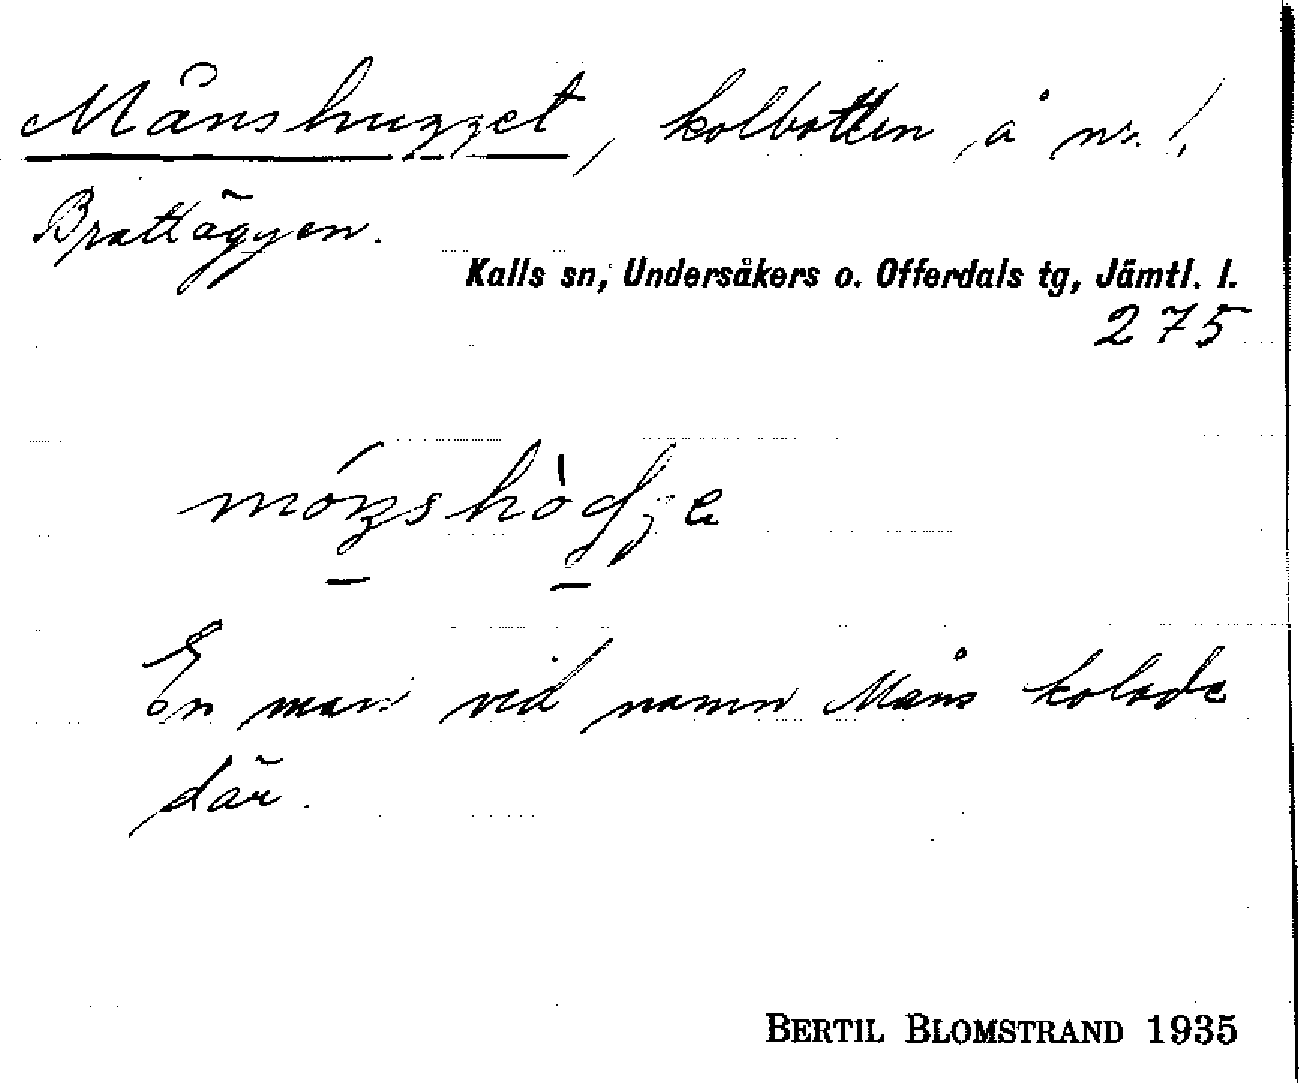 Månshugget, kolbotten å nr. 1,
Brattägyen.
Kalls sn, Undersåkers o. Offerdals tg, Jämtl. l.
275
En man vid namn Måns kolade
där.
BERTIL BLOMSTRAND 1935